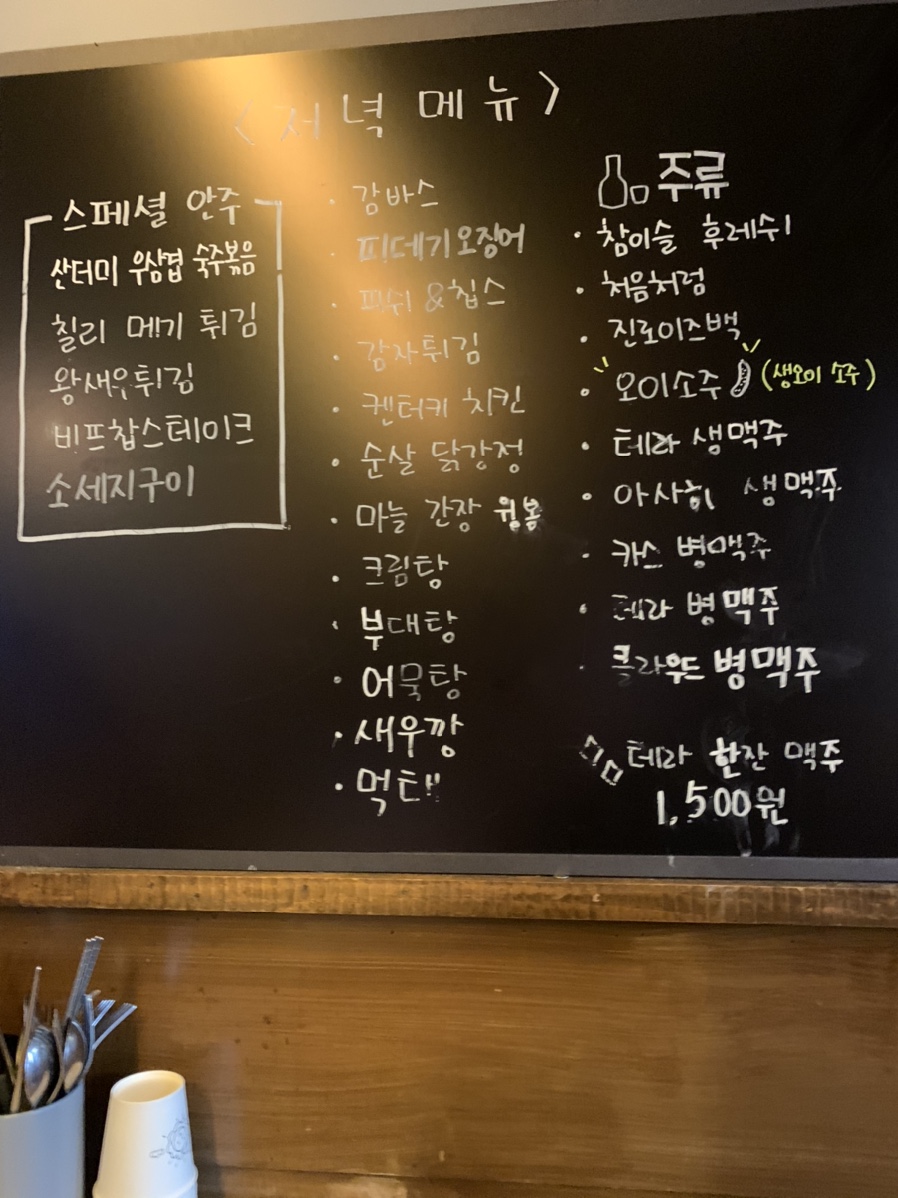 < 저녁 메뉴 >
스페셜 안주
산더미 우삼겹 숙주볶음
칠리 메기 튀김
왕새우튀김
비프찹스테이크
소세지구이
· 감바스
· 피데기오징어
· 피쉬 & 칩스
· 감자튀김
· 켄터키 치킨
· 순살 닭강정
· 마늘 간장 윙봉
· 크림탕
· 부대탕
· 어묵탕
· 새우깡
· 먹태
주류
· 참이슬 후레쉬
· 처음처럼
· 진로이즈백
· 오이소주 (생오이 소주)
· 테라 생맥주
· 아사히 생맥주
· 카스 병맥주
· 테라 병맥주
· 클라우드 병맥주
테라 한잔 맥주
1,500원